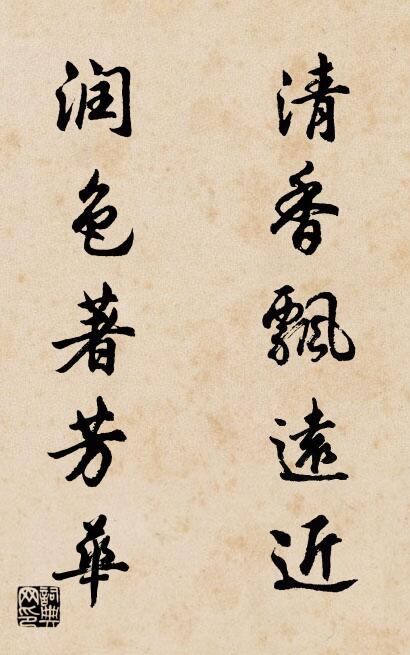 清香飄遠近
润色著芳華
詞典網印